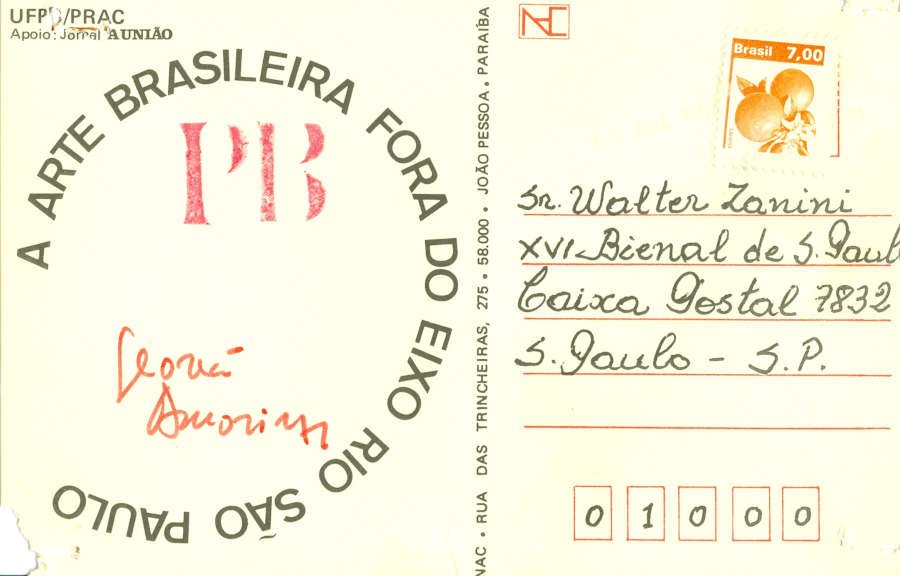 UFPB/PRAC
Apoio: Jornal A UNIÃO
A ARTE BRASILEIRA FORA DO EIXO RIO SÃO PAULO
PB
Geovã
Amorim
NAC • RUA DAS TRINCHEIRAS, 275 • 58.000 • JOÃO PESSOA • PARAÍBA
NAC
Brasil 7,00
Sr. Walter Zanini
XVI Bienal de S. Paulo
Caixa Postal 7832
S. Paulo - S.P.
0 1 0 0 0